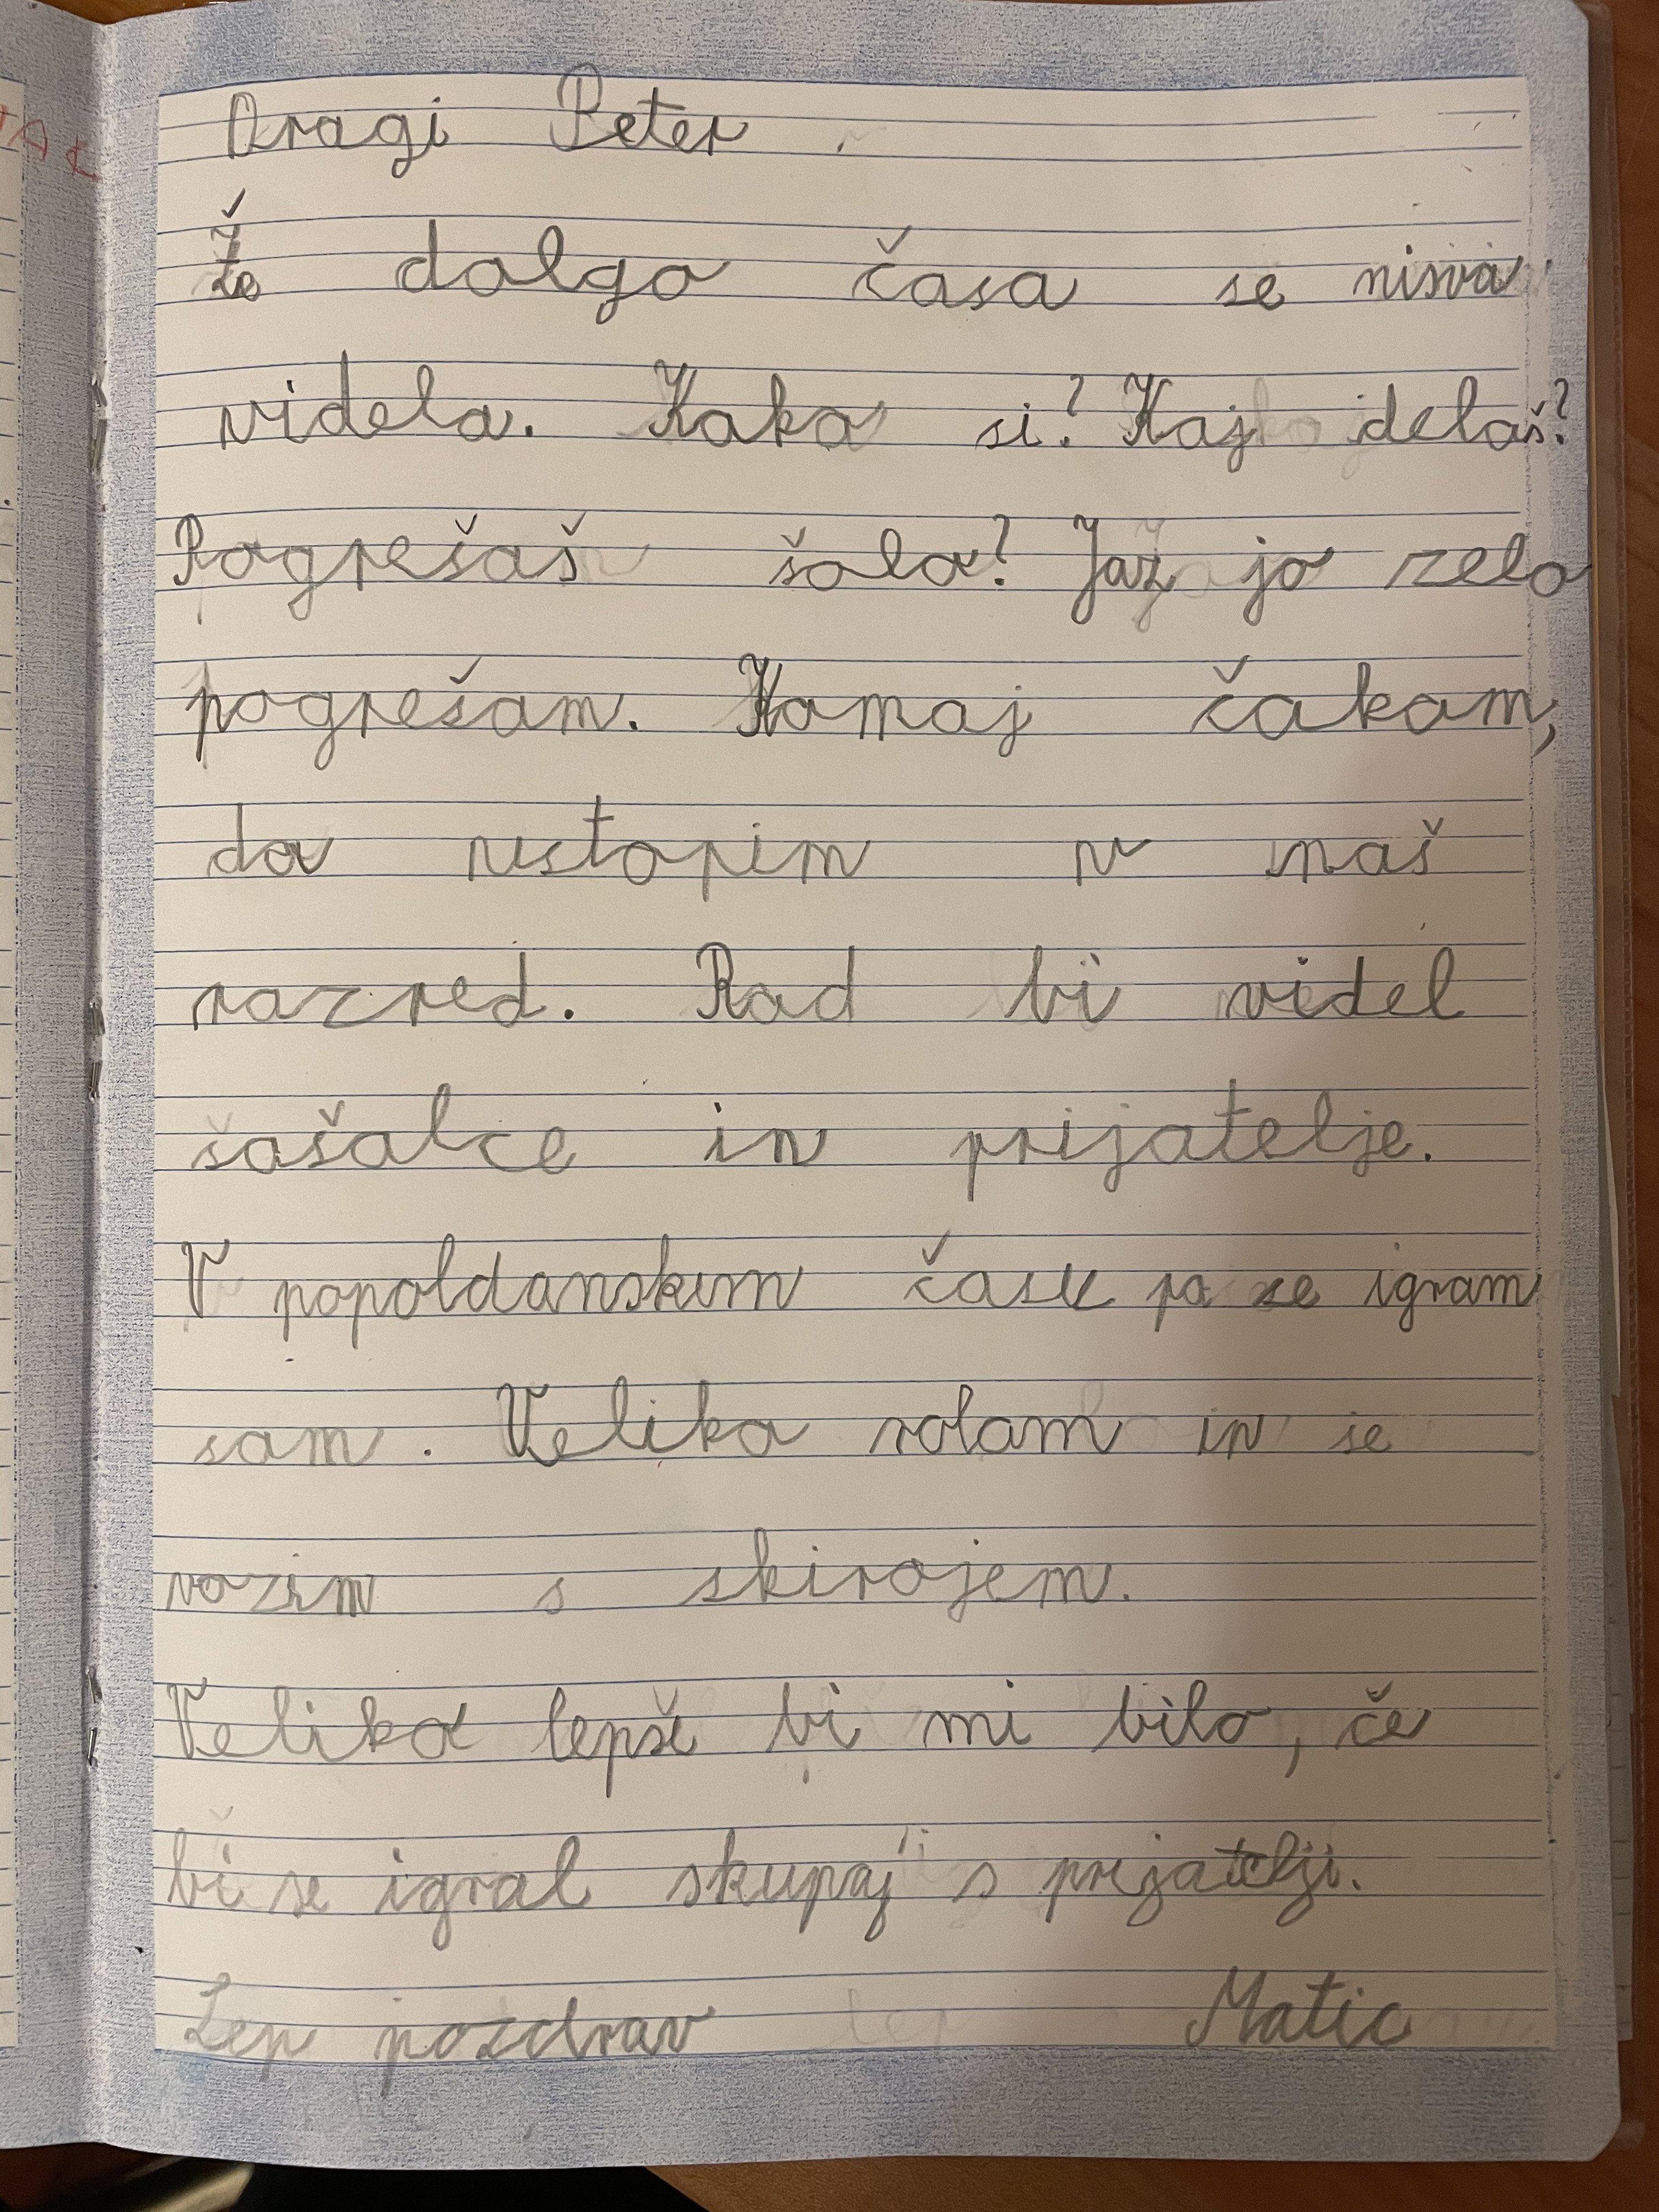 Dragi Peter
Že dolgo časa se nisva
videla. Kako si? Kaj delaš?
Pogrešaš šolo? Jaz jo zelo
pogrešam. Komaj čakam,
da vstopim v naš
razred. Rad bi videl
sošolce in prijatelje.
V popoldanskem času pa se igram
sam. Veliko rolam in se
vozim s skirojem.
Veliko lepše bi mi bilo, če
bi se igral skupaj s prijatelji.
Lep pozdrav Matic